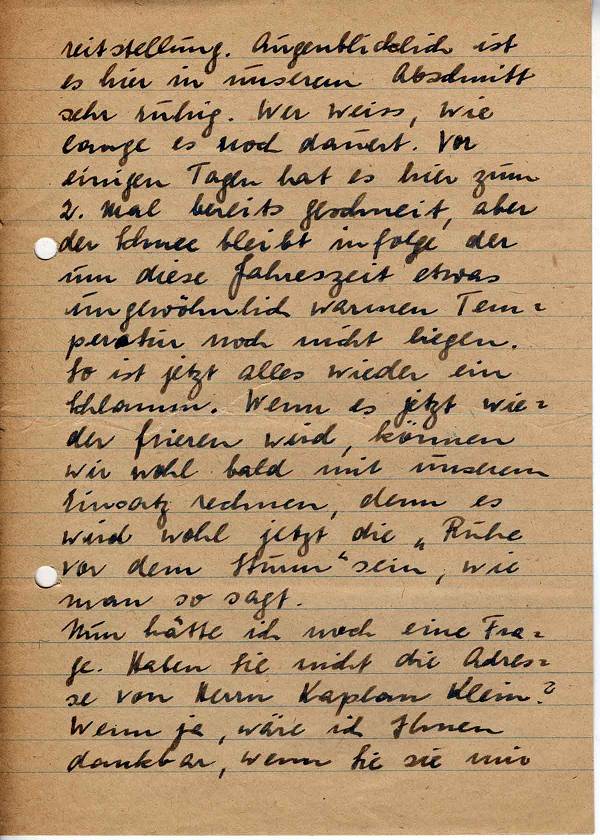 reitstellung. Augenblicklich ist
es hier in unserem Abschnitt
sehr ruhig. Wer weiss, wie
lange es noch dauert. Vor
einigen Tagen hat es hier zum
2. Mal bereits geschneit, aber
der Schnee bleibt infolge der
um diese Jahreszeit etwas
ungewöhnlich warmen Tem=
peratur noch nicht liegen.
So ist jetzt alles wieder ein
Schlamm. Wenn es jetzt wie=
der frieren wird, können
wir wohl bald mit unserem
Einsatz rechnen, denn es
wird wohl jetzt die „Ruhe
vor dem Sturm“ sein, wie
man so sagt.
Nun hätte ich noch eine Fra=
ge. Haben Sie nicht die Adres=
se von Herrn Kaplan Klein?
Wenn ja, wäre ich Ihnen
dankbar, wenn Sie sie mir